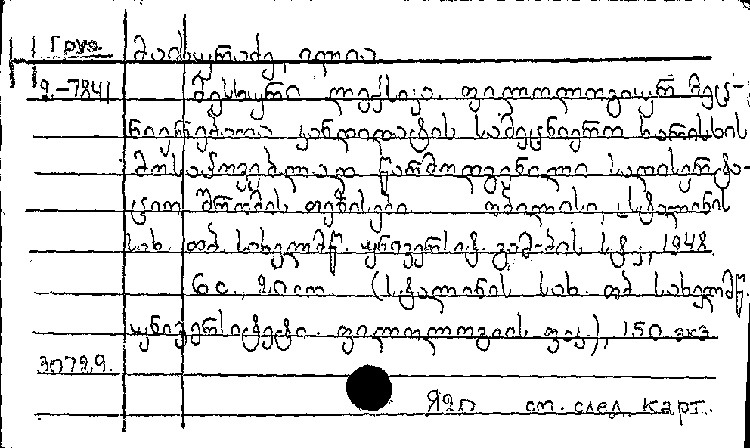 Груз მაისურაძე, ილია
2.-7841 მესხური ლექსიკა. ფილოლოგიურ მეც-
ნიერებათა კანდიდატის სამეცნიერო ხარისხის
მოსაპოვებლად წარმოდგენილი სადისერტა-
ციო შრომის თეზისები თბილისი, სტალინის
სახ. თბ. სახელმწ. უნივერსიტ. გამ-ბის სტ., 1948.
6 с., 20 см (სტალინის სახ. თბ სახელმწ.
უნივერსიტეტი. ფილოლოგიის ფაკ.), 150 экз.
30729.
Я20 см. след. карт.